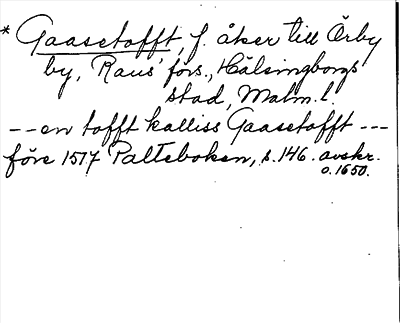 * Gaasetofft, f. åker till Örby
by, Raus' förs., Hälsingborgs
stad, Malm. l.
-- en tofft kalliss Gaasetofft ---
före 1517 Palteboken, s. 146. avskr.
o. 1650.